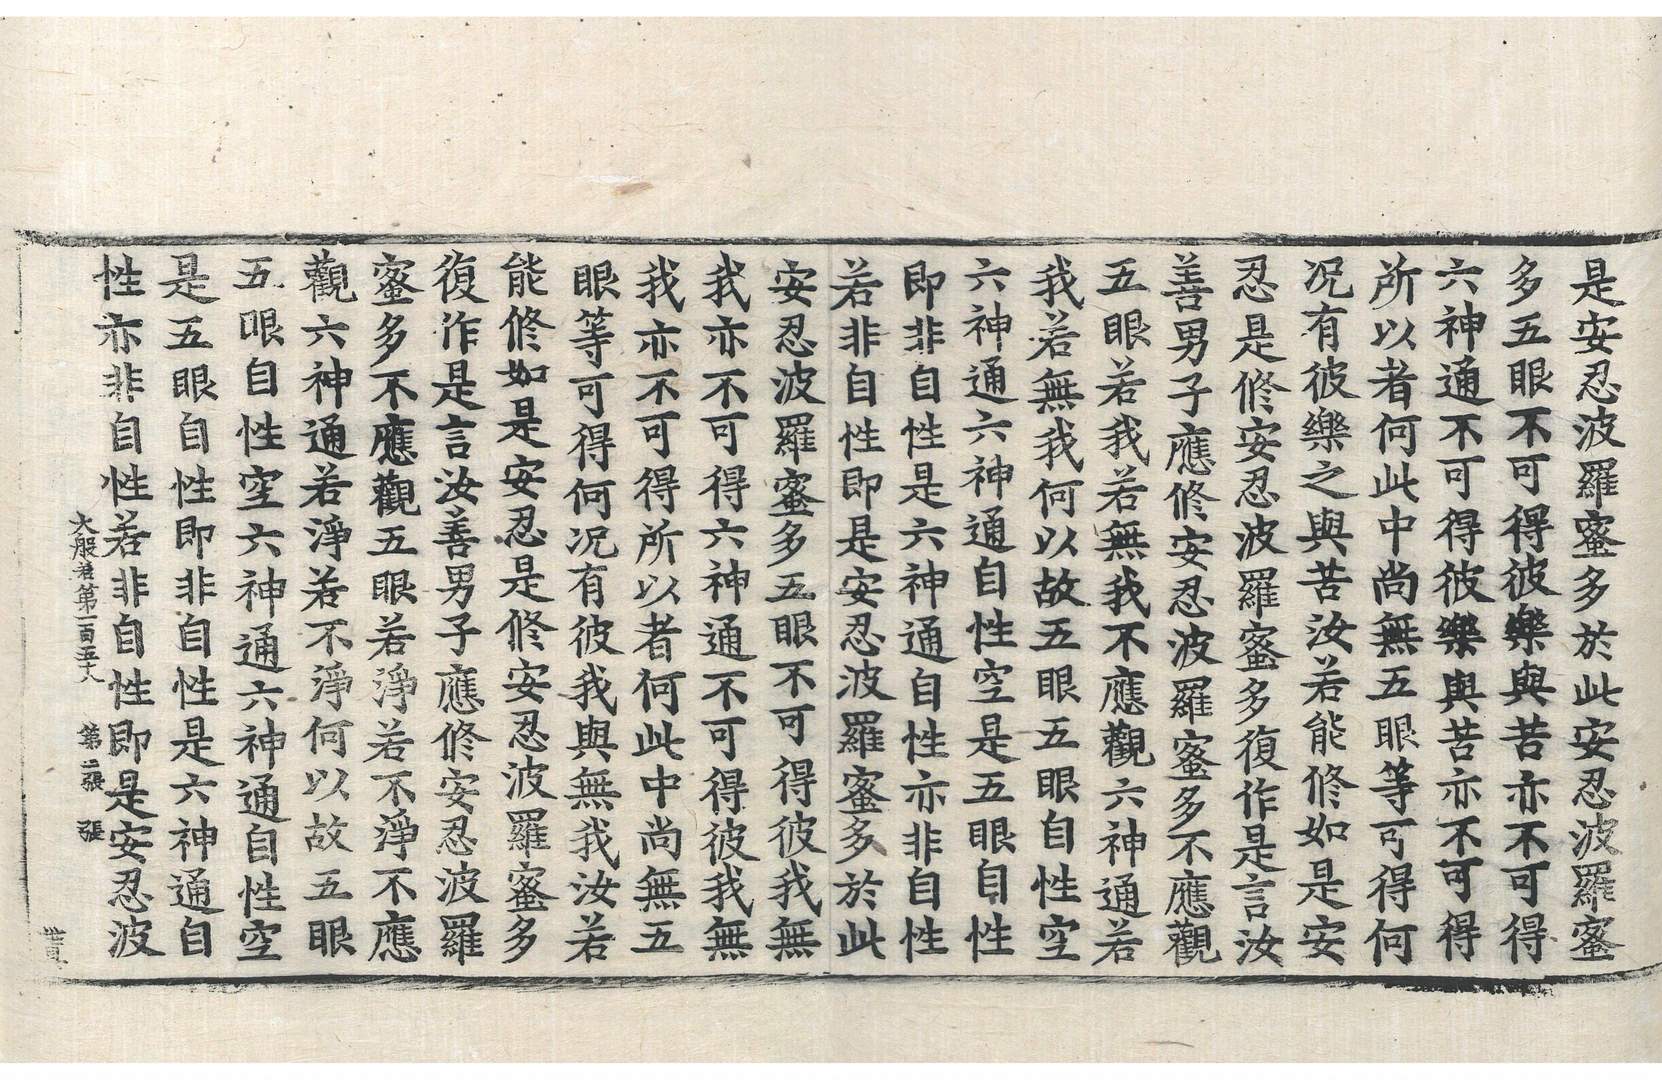 是安忍波羅蜜多於此安忍波羅蜜
多五眼不可得彼樂與苦亦不可得
六神通不可得彼樂與苦亦不可得
所以者何此中尚無五眼等可得何
况有彼樂之與苦汝若能修如是安
忍是修安忍波羅蜜多復作是言汝
善男子應修安忍波羅蜜多不應觀
五眼若我若無我不應觀六神通若
我若無我何以故五眼五眼自性空
六神通六神通自性空是五眼自性
即非自性是六神通自性亦非自性
若非自性即是安忍波羅蜜多於此
安忍波羅蜜多五眼不可得彼我無
我亦不可得六神通不可得彼我無
我亦不可得所以者何此中尚無五
眼等可得何况有彼我與無我汝若
能修如是安忍是修安忍波羅蜜多
復作是言汝善男子應修安忍波羅
蜜多不應觀五眼若淨若不淨不應
觀六神通若淨若不淨何以故五眼
五眼自性空六神通六神通自性空
是五眼自性即非自性是六神通自
性亦非自性若非自性即是安忍波
大般若第一百五十八 第二張 張